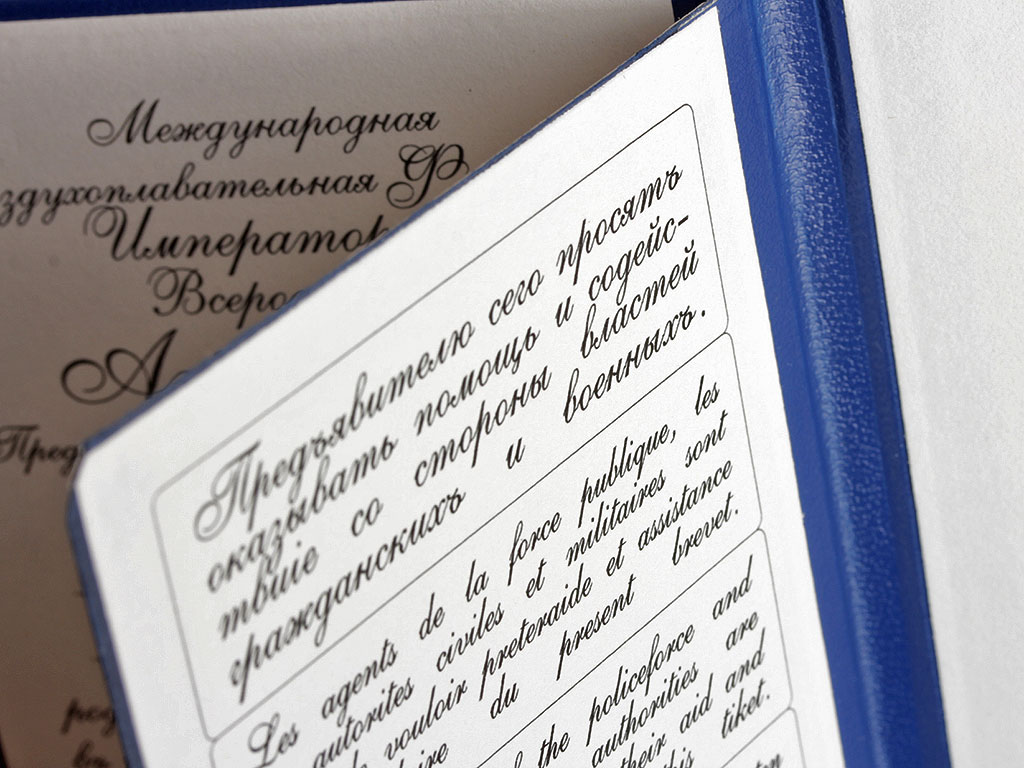 Международная
здухоплавательная Ф
Император
Всеро
А
Пред
Предъявителю сего просятъ
оказывать помощь и содейс-
твіе со стороны властей
гражданскихъ и военныхъ.
Les agents de la force publique, les
autorites civiles et militaires sont
vouloir preteraide et assistance
du present brevet.
the policeforce and
authorities are
their aid and
this tiket.